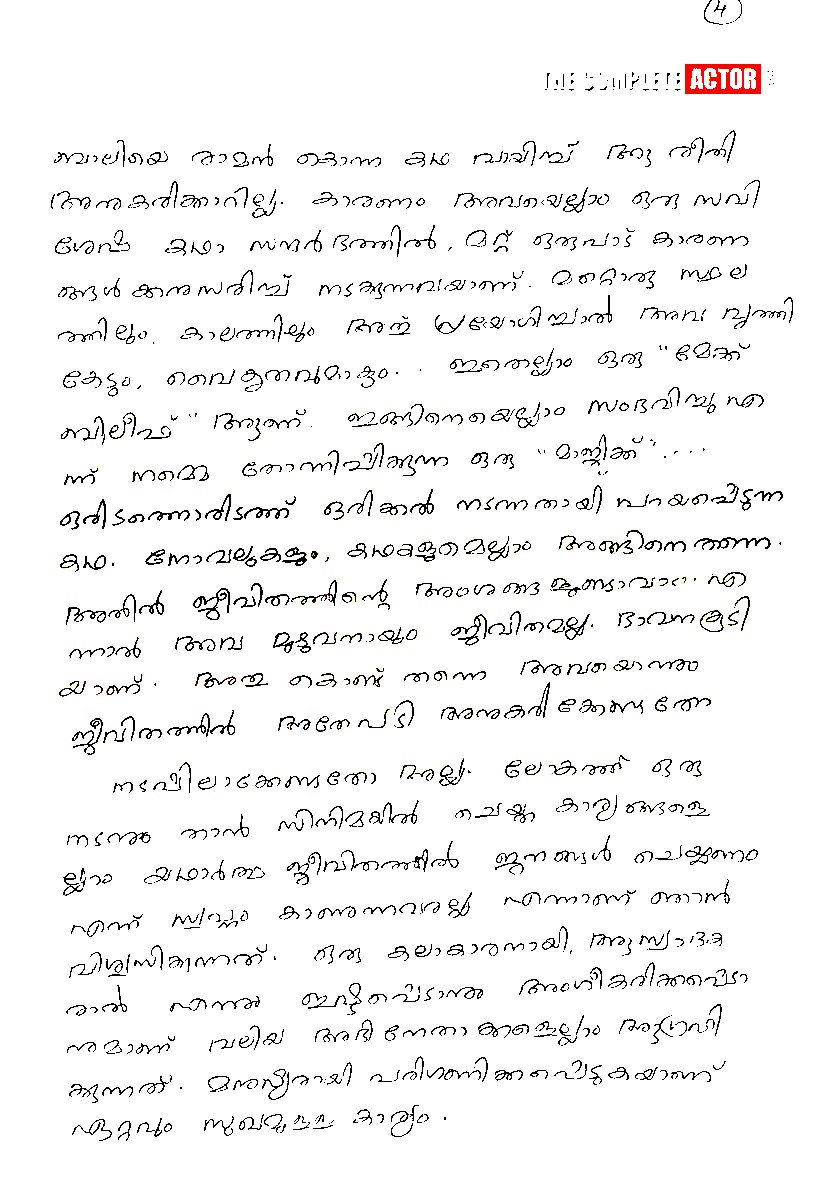 4
THE COMPLETE ACTOR
ബാലിയെ രാമൻ കൊന്ന കഥ വായിച്ച് ആ രീതി
അനുകരിക്കാറില്ല. കാരണം അവയെല്ലാം ഒരു സവി
ശേഷ കഥാ സന്ദർഭത്തിൽ, മറ്റ് ഒരുപാട് കാരണ
ങ്ങൾക്കനുസരിച്ച് നടക്കുന്നവയാണ്. മറ്റൊരു സ്ഥല
ത്തിലും, കാലത്തിലും അത് പ്രയോഗിച്ചാൽ അവ വൃത്തി
കേടും, വൈകൃതവുമാകും. ഇതെല്ലാം ഒരു "മേക്ക്
ബിലീഫ്" ആണ്. ഇങ്ങിനെയെല്ലാം സംഭവിച്ചു എ
ന്ന് നമ്മെ തോന്നിപ്പിക്കുന്ന ഒരു "മാജിക്ക്"....
ഒരിടത്തൊരിടത്ത് ഒരിക്കൽ നടന്നതായി പറയപ്പെടുന്ന
കഥ. നോവലുകളും, കഥകളുമെല്ലാം അങ്ങിനെ തന്നെ.
അതിൽ ജീവിതത്തിന്റെ അംശങ്ങളുണ്ടാവാം. എ
ന്നാൽ അവ മുഴുവനായും ജീവിതമല്ല. ഭാവനകൂടി
യാണ്. അതു കൊണ്ട് തന്നെ അവയൊന്നും
ജീവിതത്തിൽ അതേപടി അനുകരിക്കേണ്ടതോ
നടപ്പിലാക്കേണ്ടതോ അല്ല. ലോകത്ത് ഒരു
നടനും താൻ സിനിമയിൽ ചെയ്ത കാര്യങ്ങളെ
ല്ലാം യഥാർത്ഥ ജീവിതത്തിൽ ജനങ്ങൾ ചെയ്യണം
എന്ന് സ്വപ്നം കാണുന്നവരല്ല എന്നാണ് ഞാൻ
വിശ്വസിക്കുന്നത്. ഒരു കലാകാരനായി, ആസ്വാദക
രാൽ എന്നും ഇഷ്ടപ്പെടാനും അംഗീകരിക്കപ്പെടാ
നുമാണ് വലിയ അഭിനേതാക്കളെല്ലാം ആഗ്രഹി
ക്കുന്നത്. മനുഷ്യരായി പരിഗണിക്കപ്പെടുകയാണ്
ഏറ്റവും സുഖമുള്ള കാര്യം.